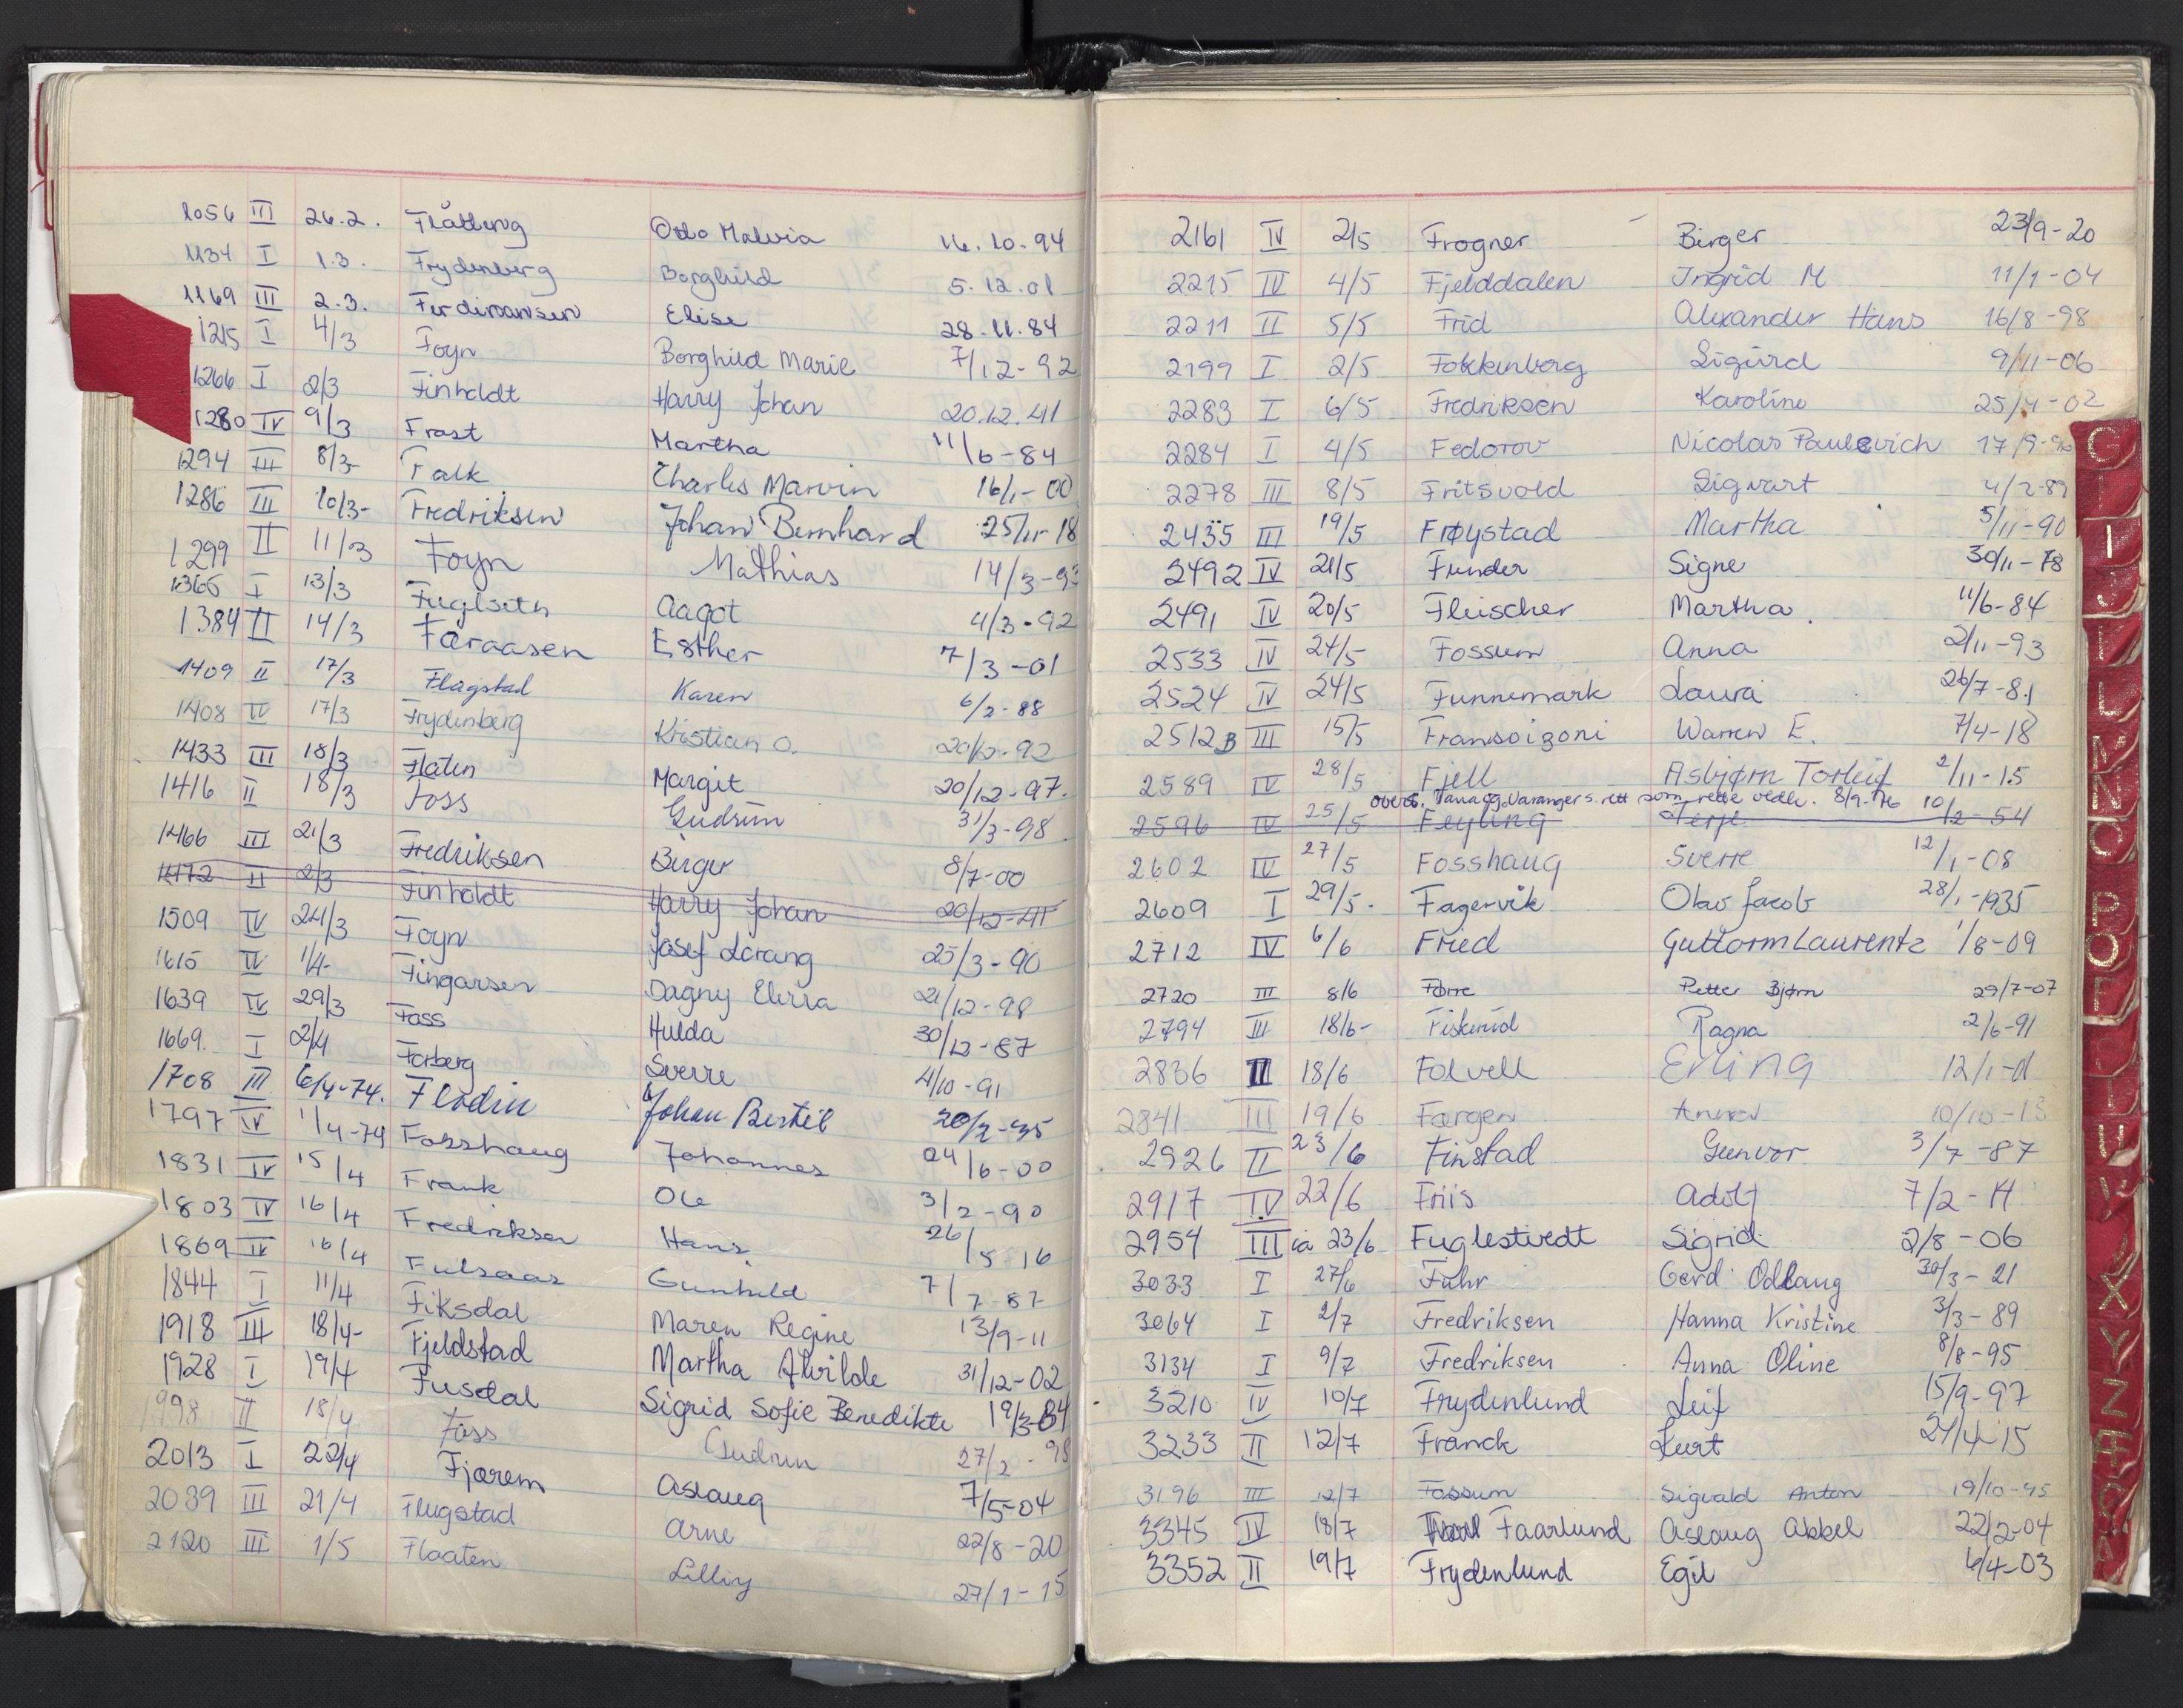 1056 III 26.2. Flåtterug Otto Malvin 16.10.94
1134 I 1.3. Frydenberg Borghild 5.12.01
1169 III 2.3. Ferdinansen Elise 28.11.84
1215 I 4/3 Foyn Borghild Marie 7/12-92
1266 I 2/3 Finholdt Harry Johan 20.12.41
1280 IV 9/3 Frast Martha 11/6-84
1294 III 8/3- Falk Charles Marvin 16/1-00
1286 III 10/3- Fredriksen Johan Bernhard 25/11-18
1299 II 11/3 Foyn Mathias 14/3-93
1365 I 13/3 Fuglseth Aagot 4/3-92
1384 II 14/3 Færaasen Esther 7/3-01
1409 II 17/3 Flagstad Karen 6/2-88
1408 IV 17/3 Frydenberg Kristian O. 20/12-92
1433 III 18/3 Flaten Margit 20/12-97.
1416 II 18/3 Foss Gudrun 31/3-98
1466 III 21/3 Fredriksen Birger 8/7-00
1472 II 2/3 Finholdt Harry Johan 20/12-41
1509 IV 24/3 Foyn Josef Lorang 25/3-90
1615 IV 1/4- Fingarsen Dagny 21/12-98
1639 IV 29/3 Foss Hulda 30/12-87
1669. I 2/4 Forberg Sverre 4/10-91
1708 III 6/4-74. Flodin Johan Bertil 20/2-45
1797 IV 1/4-74 Fosshaug Johannes 24/6-00
1831 IV 15/4 Frank Ole 3/2-90
1803 IV 16/4 Fredriksen Hans 26/5-16
1869 IV 16/4 Fulsaas Gunhild 7/7-87
1844 I 11/4 Fiksdal Maren Regine 13/9-11
1918 III 18/4- Fjeldstad Martha Alvilde 31/12-02
1928 I 19/4 Fusdal Sigrid Sofie Benedikte 19/3-04
1998 II 18/4 Foss Gudrun 27/2-98
2013 I 22/4 Fjærem Aslaug 7/5-04
2039 III 21/4 Flugstad Arne 22/8-20
2120 III 1/5 Flaaten Lilly 27/1-15
2161 IV 2/5 Frogner Birger 23/9-20
2215 IV 4/5 Fjelddalen Ingrid M 11/1-04
2211 II 5/5 Frid Alexander Hans 16/8-98
2199 I 2/5 Fokkenberg Sigurd 9/11-06
2283 I 6/5 Fredriksen Karoline 25/4-02
2284 I 4/5 Fedorov Nicolas Paulevich 17/9-
2278 III 8/5 Fritsvold Sigvart 4/2-89
2435 III 19/5 Frøystad Martha 5/11-90
2492 IV 21/5 Funder Signe 30/11-78
2491 IV 20/5 Fleischer Martha 11/6-84
2533 IV 24/5 Fossum Anna 2/11-93
2524 IV 24/5 Funnemark Laura 26/7-81
2512B III 15/5 Fransoizoni Warren E. 7/4-18
2589 IV 28/5 Fjell Asbjørn Torleif 2/11-15
overs. Tana og Varanger s.rett som rette vedk. 8/9-76
2596 IV 25/5 Feyling Terje 10/2-54
2602 IV 27/5 Fosshaug Sverre 12/1-08
2609 I 29/5. Fagervik Olav Jacob 28/1-1935
2712 IV 6/6 Fried Guttorm Laurentz 1/8-09
2720 III 8/6 Førre Petter Bjørn 29/7-07
2794 III 18/6- Fiskerud Ragna 2/6-91
2836 II 18/6 Folvell Erling 12/1-01
2841 III 19/6 Færgen Anna 10/10-13
2926 II 23/6 Finstad Gunvor 3/7-87
2917 IV 22/6 Friis Adolf 7/2-14
2954 III ia 23/6 Fuglestvedt Sigrid 2/8-06
3033 I 27/6 Führ Gerd Odlaug 30/3-21
3064 I 2/7 Fredriksen Hanna Kristine 3/3-89
3134 I 9/7 Fredriksen Anna Oline 8/8-95
3210 IV 10/7 Frydenlund Leif 15/9-97
3233 II 12/7 Franck Kurt 21/4-15
3196 III 12/7 Fossum Sigvald Anton 19/10-95
3345 IV 18/7 Faarlund Aslaug Abbel 22/2-04
3352 II 19/7 Frydenlund Egil 6/4-03
G
I
J
L
M
N
O
P
X
Y
Z